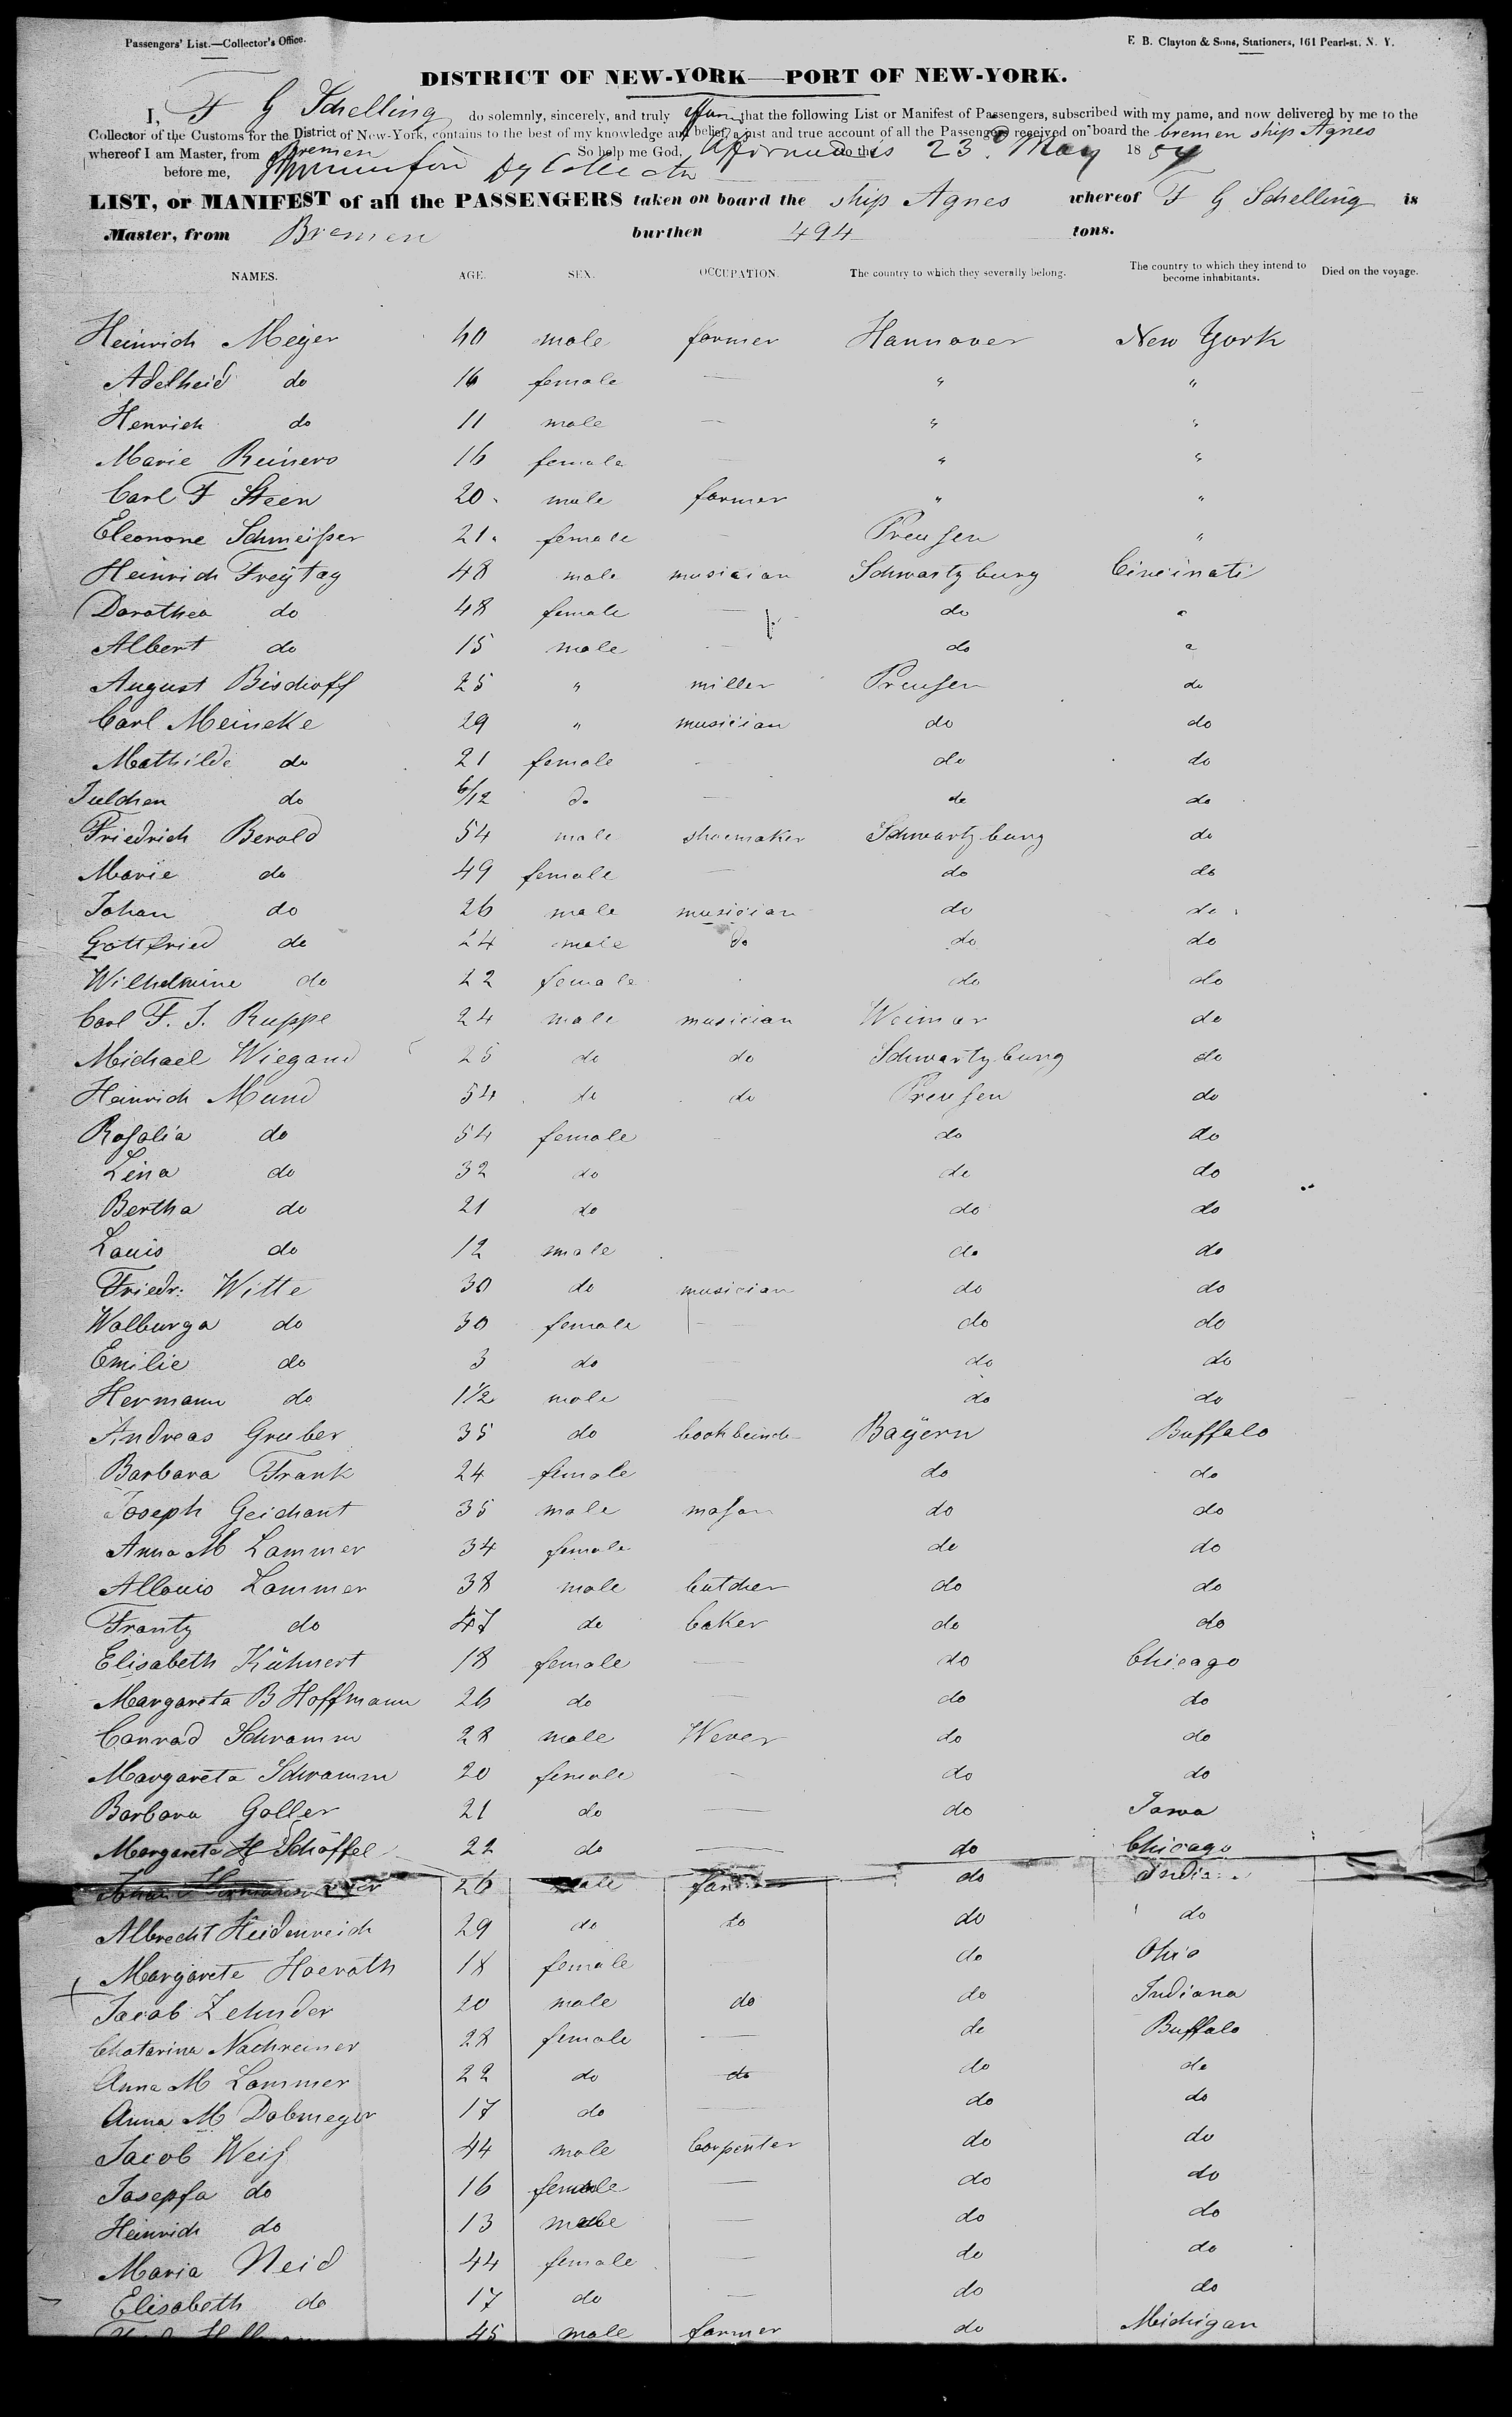 Passengers' List.—Collector's Office.
E. B. Clayton & Sons, Stationers, 161 Pearl-st. N. Y.
DISTRICT OF NEW-YORK—PORT OF NEW-YORK.
I, F G Schelling do solemnly, sincerely, and truly affirm that the following List or Manifest of Passengers, subscribed with my name, and now delivered by me to the
Collector of the Customs for the District of New-York, contains to the best of my knowledge and belief, a just and true account of all the Passengers received on board the bremen ship Agnes
whereof I am Master, from Bremen So help me God, Affirmed this 23d May 1854
before me, Dy Collector
LIST, or MANIFEST of all the PASSENGERS taken on board the ship Agnes whereof F G Schelling is
Master, from Bremen burthen 494 tons.
NAMES. AGE. SEX. OCCUPATION. The country to which they severally belong. The country to which they intend to become inhabitants. Died on the voyage.
Heinrich Meyer 40 male farmer Hannover New York
Adelheid do 16 female — " "
Henrich do 11 male — " "
Marie Reiners 16 female — " "
Carl F Steen 20 male farmer " "
Eleonore Schmeißer 21 female — Preußen "
Heinrich Freytag 48 male musician Schwartzburg Cincinati
Dorothea do 48 female — do "
Albert do 15 male — do "
August Bischoff 25 " miller Preußen do
Carl Meineke 29 " musician do do
Mathilde do 21 female — do do
Julchen do 6/12 do — do do
Friedrich Berold 54 male shoemaker Schwartzburg do
Marie do 49 female — do do
Johan do 26 male musician do do
Gottfried do 24 male do do do
Wilhelmine do 22 female do do
Carl F. J. Ruppe 24 male musician Weimar do
Michael Wiegand 25 do do Schwartzburg do
Heinrich Mund 54 do do Preußen do
Rosalia do 54 female — do do
Lina do 32 do do do
Bertha do 21 do do do
Louis do 12 male do do
Friedr: Witte 30 do musician do do
Walburga do 30 female — do do
Emilie do 3 do — do do
Hermann do 1 1/2 male — do do
Andreas Gruber 35 do bookbinde Bayern Buffalo
Barbara Frank 24 female do do
Joseph Geichant 35 male mason do do
Anna M Lammer 34 female do do
Allouis Lammer 38 male butcher do do
Frantz do 47 do baker do do
Elisabeth Kühnert 18 female — do Chicago
Margareta B Hoffmann 26 do — do do
Conrad Schramm 28 male Wever do do
Margareta Schramm 20 female — do do
Barbara Goller 21 do — do Jowa
Margareta H Schöffel 22 do — do Chicago
26 male do
Albrecht Heidenreich 29 do do do do
Margarete Hoerath 18 female do Ohio
Jacob Zehnder 20 male do do Indiana
Chatarina Nachreiner 28 female — do Buffalo
Anna M Lammer 22 do do do do
Anna M Dobmeyer 17 do — do do
Jacob Weiß 44 male Carpenter do do
Josepfa do 16 female — do do
Heinrich do 13 male — do do
Maria Neid 44 female — do do
Elisabeth do 17 do — do do
45 male farmer do Michigan